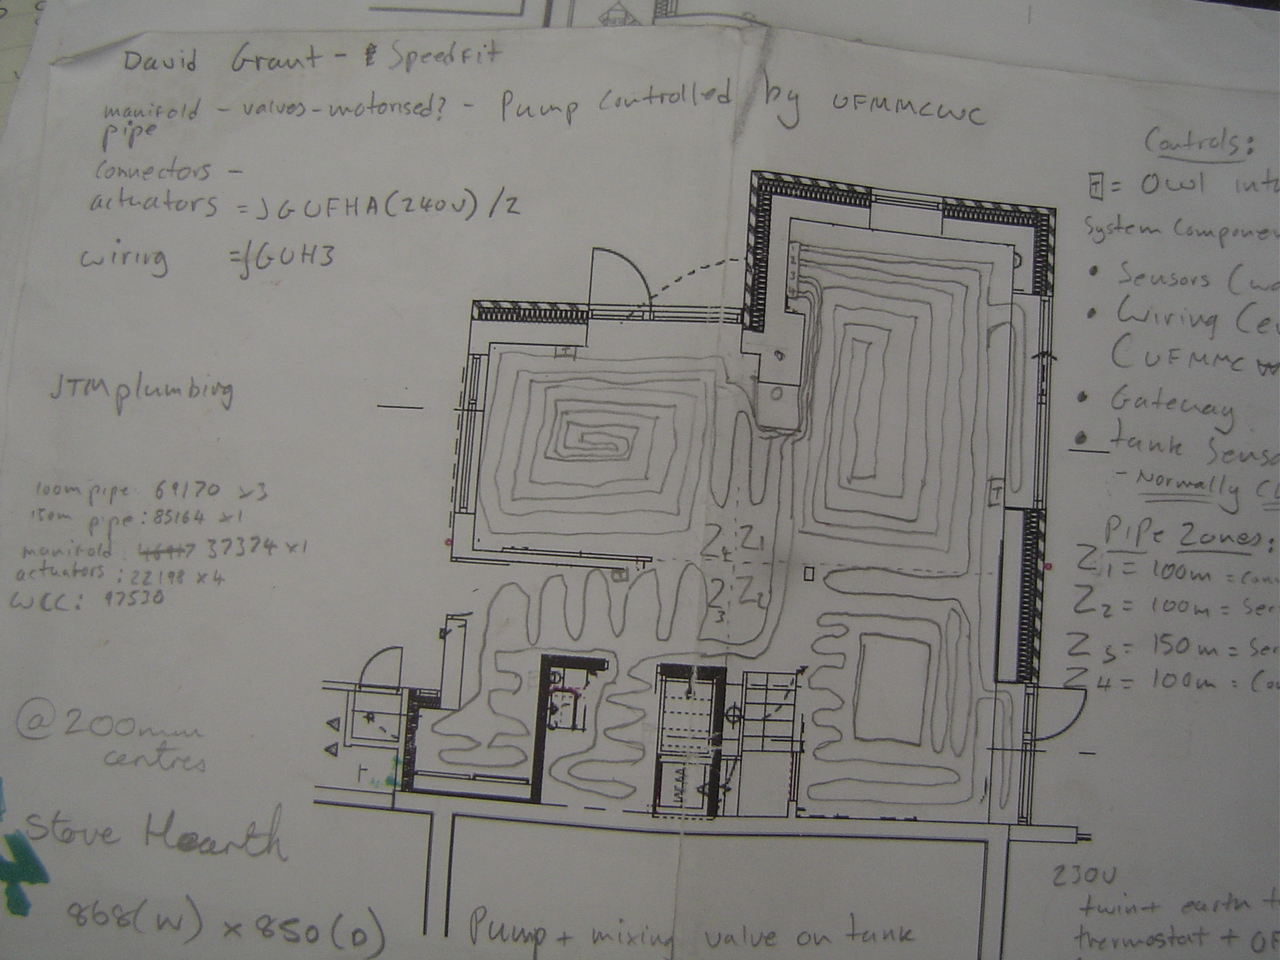 David Grant - SpeedFit
manifold - valves - motorised? - Pump controlled by UFMMCWC
pipe
connectors -
actuators = JGUFHA(240V)/2
wiring = JGUH3
JTM plumbing
100m pipe: 69170 x3
150m pipe: 85164 x1
manifold: 37374 x1
actuators: 22198 x4
WCC: 97530
@ 200mm
centres
Stove Hearth
868(W) x 850(D)
Pump + mixing valve on tank
Z4 Z1
Z3 Z2
T
T
Controls:
T = Owl
System
• Sensors
• Wiring
• Gateway
• tank
- Normally
Pipe Zones:
Z1 = 100m =
Z2 = 100m =
Z3 = 150m =
Z4 = 100m =
230V
twin + earth
thermostat +